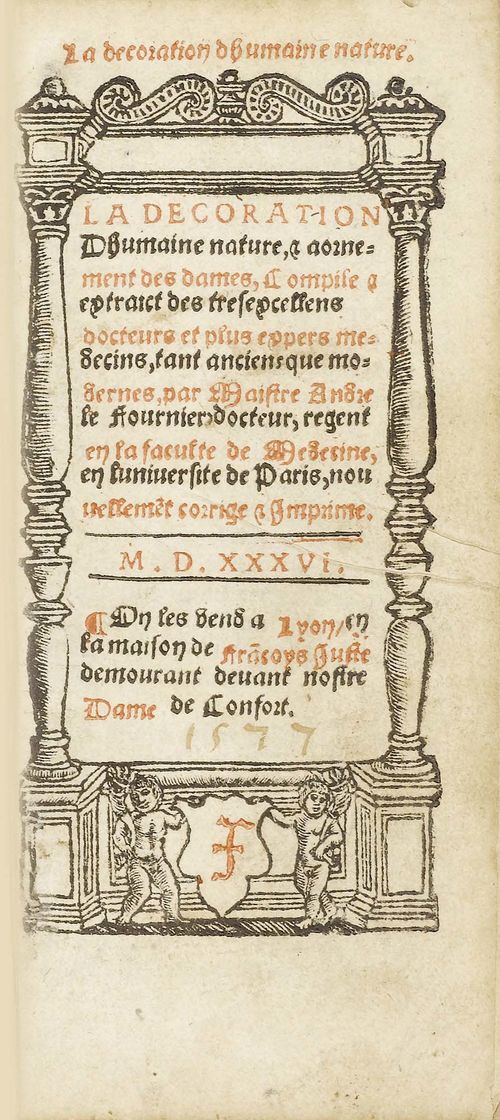 La decoration dhumaine nature.
LA DECORATION
Dhumaine nature, ⁊ aorne=
ment des dames, Compile ⁊
extraict des tresexcellens
docteurs et plus expers me=
decins, tant anciens que mo=
dernes, par Maistre Andre
le Fournier, docteur, regent
en la faculte de Medecine,
en luniuersite de Paris, nou
uellemẽt corrige ⁊ Imprime.
M. D. XXXVi.
¶ On les vend a Lyon, en
la maison de Frãcoys Juste
demourant deuant nostre
Dame de Confort.
1577